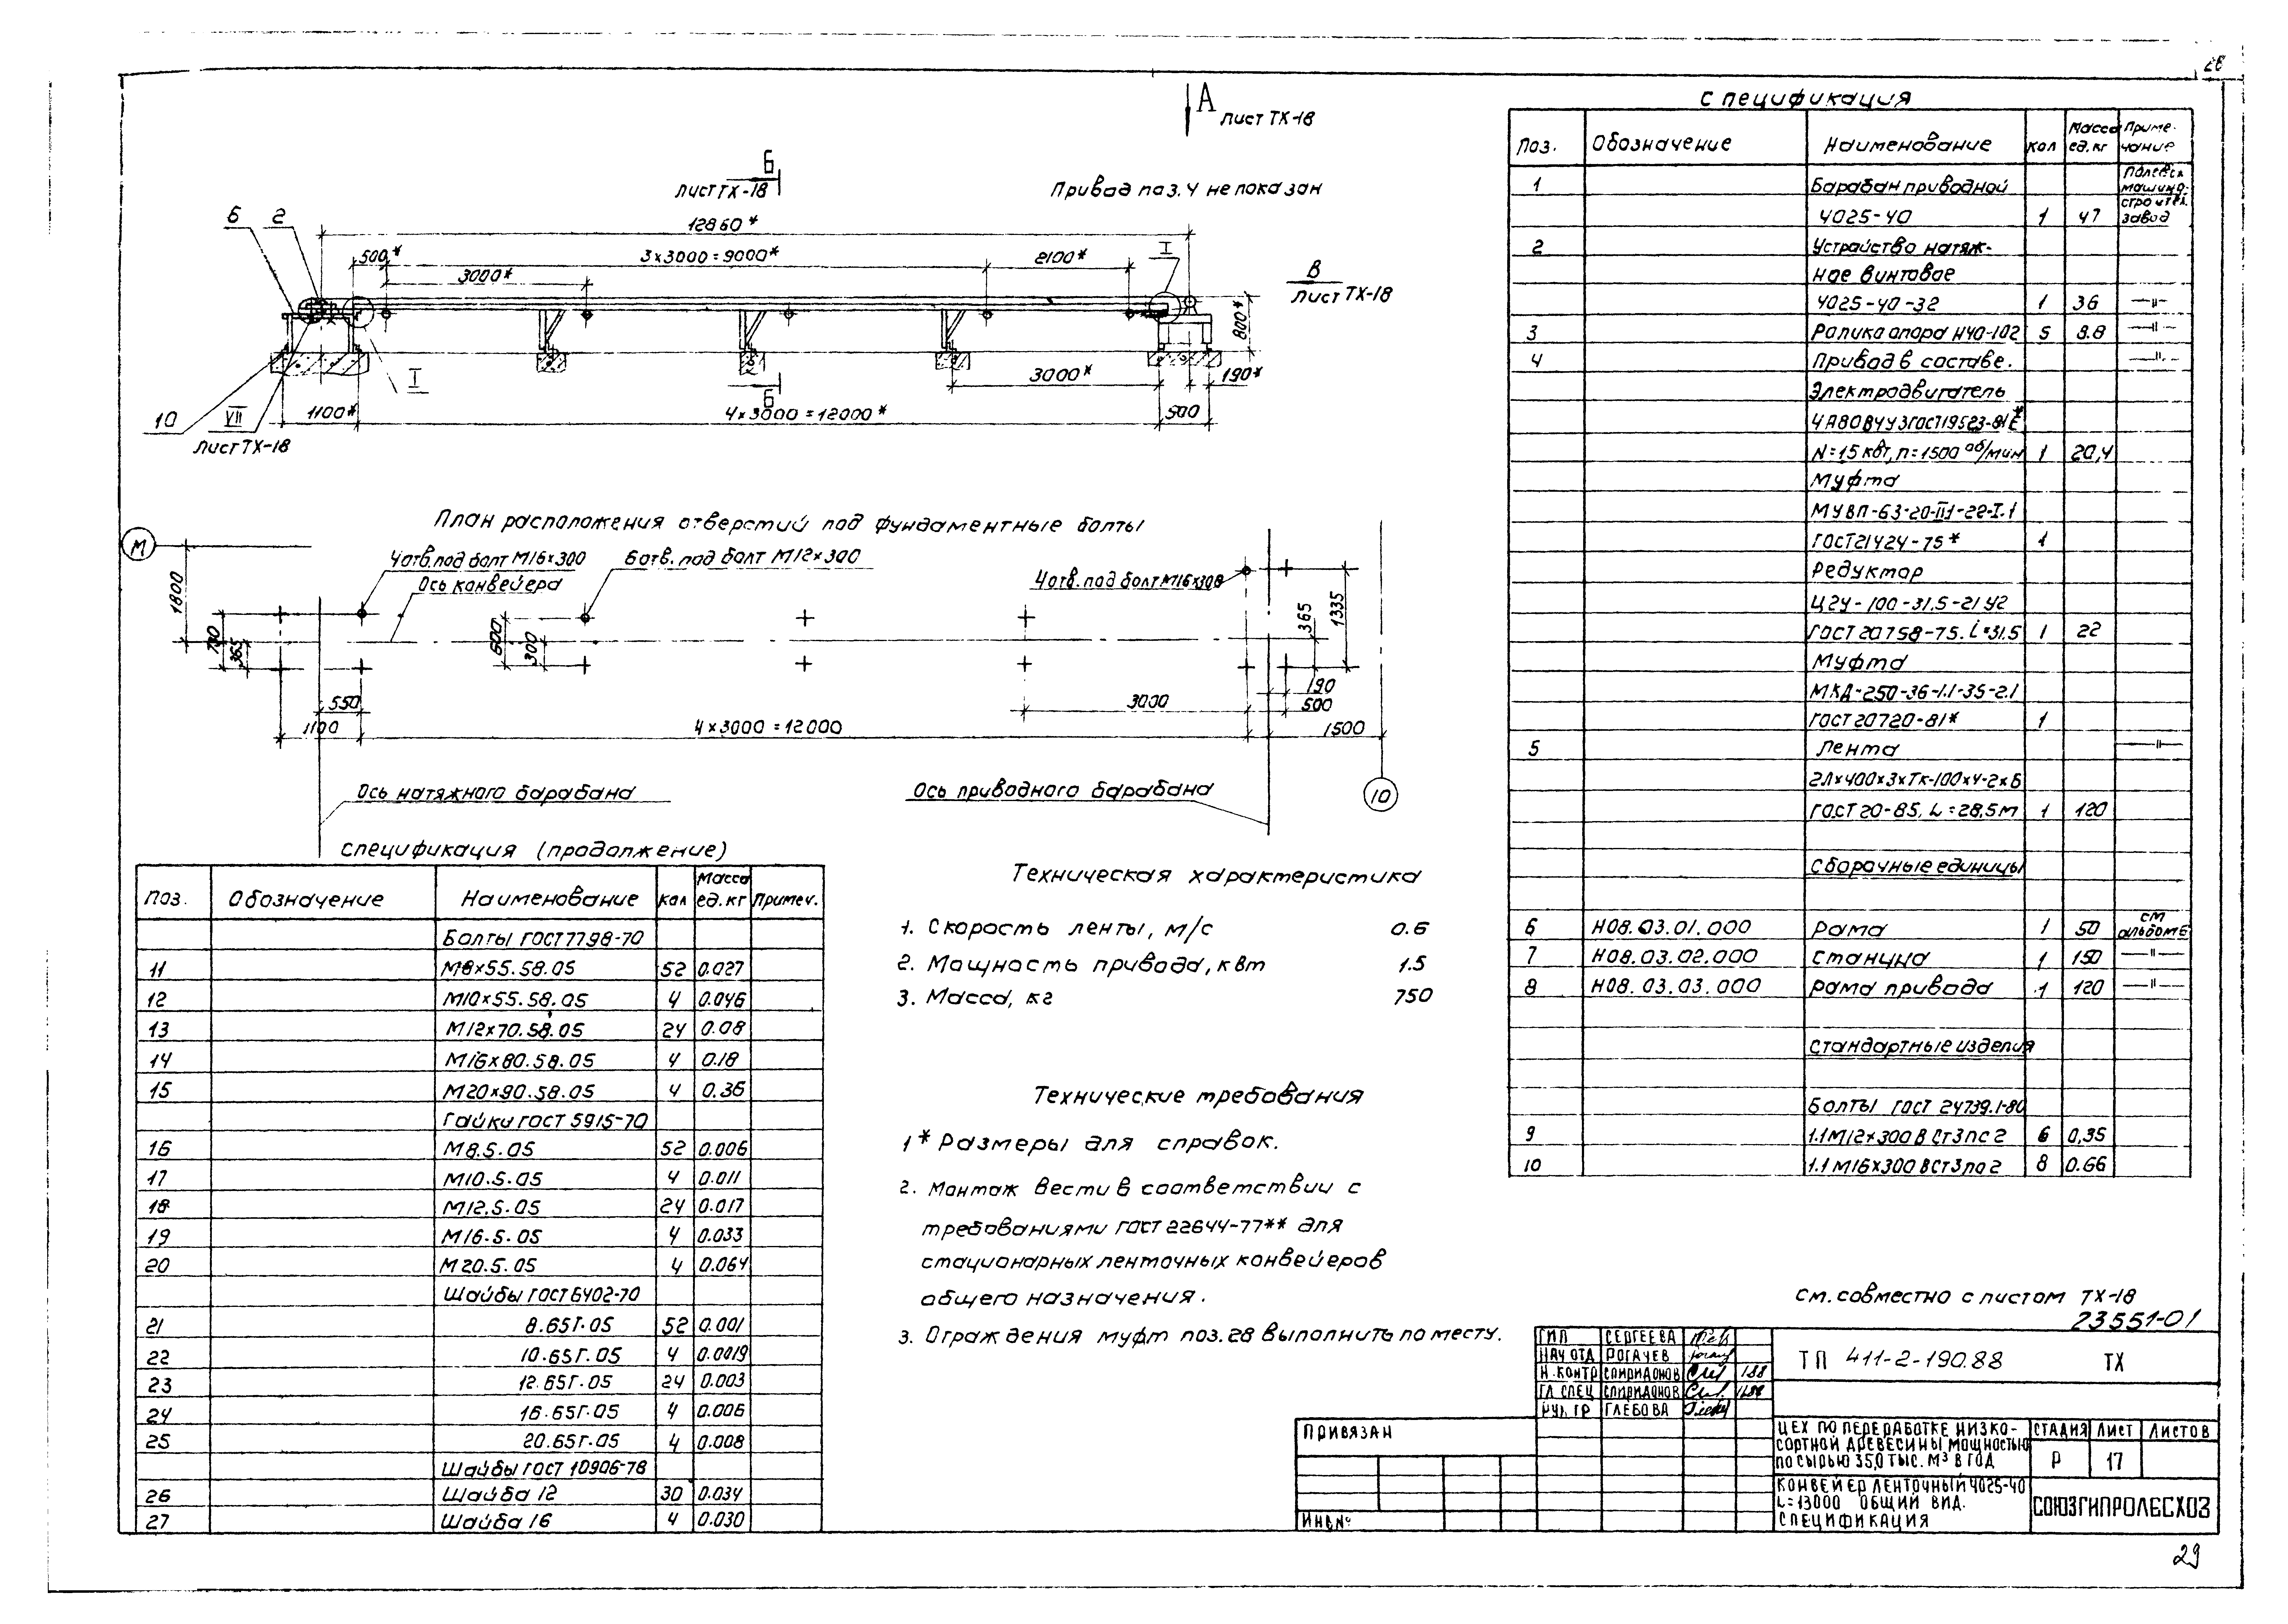 28
А
лист ТХ-18
Б
лист ТХ-18
Привод поз. 4 не показан
6 2
12860*
500*
3×3000=9000*
2100*
I
3000*
В
лист ТХ-18
800*
I
3000*
190*
Б
10
VII
1100*
4×3000=12000*
500
лист ТХ-18
План расположения отверстий под фундаментные болты
М
4 отв. под болт М16×300
6 отв. под болт М12×300
Ось конвейера
4 отв. под болт М16×300
1800
700
365
600
300
365
1335
550
1100
4×3000=12000
3000
190
500
1500
Ось натяжного барабана
Ось приводного барабана
10
Спецификация (продолжение)
Поз. Обозначение Наименование Кол Масса ед. кг Примеч.
Болты ГОСТ 7798-70
11 М8×55.58.05 52 0.027
12 М10×55.58.05 4 0.046
13 М12×70.58.05 24 0.08
14 М16×80.58.05 4 0.18
15 М20×90.58.05 4 0.36
Гайки ГОСТ 5915-70
16 М8.5.05 52 0.006
17 М10.5.05 4 0.011
18 М12.5.05 24 0.017
19 М16.5.05 4 0.033
20 М20.5.05 4 0.064
Шайбы ГОСТ 6402-70
21 8.65Г.05 52 0.001
22 10.65Г.05 4 0.0019
23 12.65Г.05 24 0.003
24 16.65Г.05 4 0.006
25 20.65Г.05 4 0.008
Шайбы ГОСТ 10906-78
26 Шайба 12 30 0.034
27 Шайба 16 4 0.030
Техническая характеристика
1. Скорость ленты, м/с 0.6
2. Мощность привода, квт 1.5
3. Масса, кг 750
Технические требования
1* Размеры для справок.
2. Монтаж вести в соответствии с
требованиями ГОСТ 22644-77** для
стационарных ленточных конвейеров
общего назначения.
3. Ограждения муфт поз. 28 выполнить по месту.
Спецификация
Поз. Обозначение Наименование Кол Масса ед. кг Примечание
1 Барабан приводной
4025-40 1 47
машино-
строител.
завод
2 Устройство натяж-
ное винтовое
4025-40-32 1 36 —"—
3 Ролика опора Н40-102 5 8.8 —"—
4 Привод в составе. —"—
Электродвигатель
4А80В4У3 ГОСТ 19523-81Е*
N=1,5 квт, n=1500 об/мин 1 20,4
Муфта
МУВП-63-20-II.1-22-I.1
ГОСТ 21424-75* 1
Редуктор
Ц2У-100-31,5-21У2
ГОСТ 20758-75. i=31.5 1 22
Муфта
МКД-250-36-1.1-35-2.1
ГОСТ 20720-81* 1
5 Лента —"—
2Л×400×3×ТК-100×4-2×Б
ГОСТ 20-85, L=28,5м 1 120
Сборочные единицы
6 Н08.03.01.000 Рама 1 50 см альбом 6
7 Н08.03.02.000 Станина 1 150 —"—
8 Н08.03.03.000 Рама привода 1 120 —"—
Стандартные изделия
Болты ГОСТ 24739.1-80
9 1.1 М12×300 В Ст3пс2 6 0,35
10 1.1 М16×300 ВСт3пс2 8 0.66
См. совместно с листом ТХ-18
23551-01
ГИП СЕРГЕЕВА
НАЧ ОТД РОГАЧЕВ
Н.КОНТР СПИРИДОНОВ 1.88
ГЛ СПЕЦ СПИРИДОНОВ 1.88
РУК. ГР ГЛЕБОВА
ТП 411-2-190.88 ТХ
ПРИВЯЗАН
ИНВ№
ЦЕХ ПО ПЕРЕРАБОТКЕ НИЗКО-
СОРТНОЙ ДРЕВЕСИНЫ МОЩНОСТЬЮ
ПО СЫРЬЮ 35,0 ТЫС. М³ В ГОД
СТАДИЯ ЛИСТ ЛИСТОВ
Р 17
КОНВЕЙЕР ЛЕНТОЧНЫЙ 4025-40
L=13000 ОБЩИЙ ВИД.
СПЕЦИФИКАЦИЯ
СОЮЗГИПРОЛЕСХОЗ
29